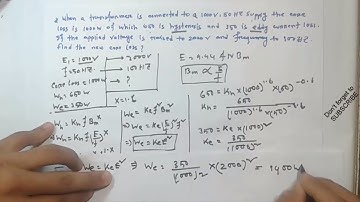 2. When a transformer is connected to a 1000V, 50 HZ supply the core
loss is 1000W of which 650 is hysteresis and 350 is eddy current loss.
If the applied voltage is raised to 2000V and frequency to 100HZ
find the new core loss?
E₁ = 1000V → 2000V
f = 50HZ → 100HZ
Core loss = 1000W → ?
Wh = 650W
We = 350W
x = 1.6
E = 4.44 f N Bm
Bm ∝ E/f
We = Ke f² Bm²
We = Ke E²
650 = Kh × (1000)^1.6 × (50)^-0.6
Kh = 650 / (1000)^1.6 (50)^-0.6
350 = Ke × (1000)²
Ke = 350 / (1000)²
We = Ke E² ⇒ We = 350 / (1000)² × (2000)² = 1400W
Don't forget to
SUBSCRIBE